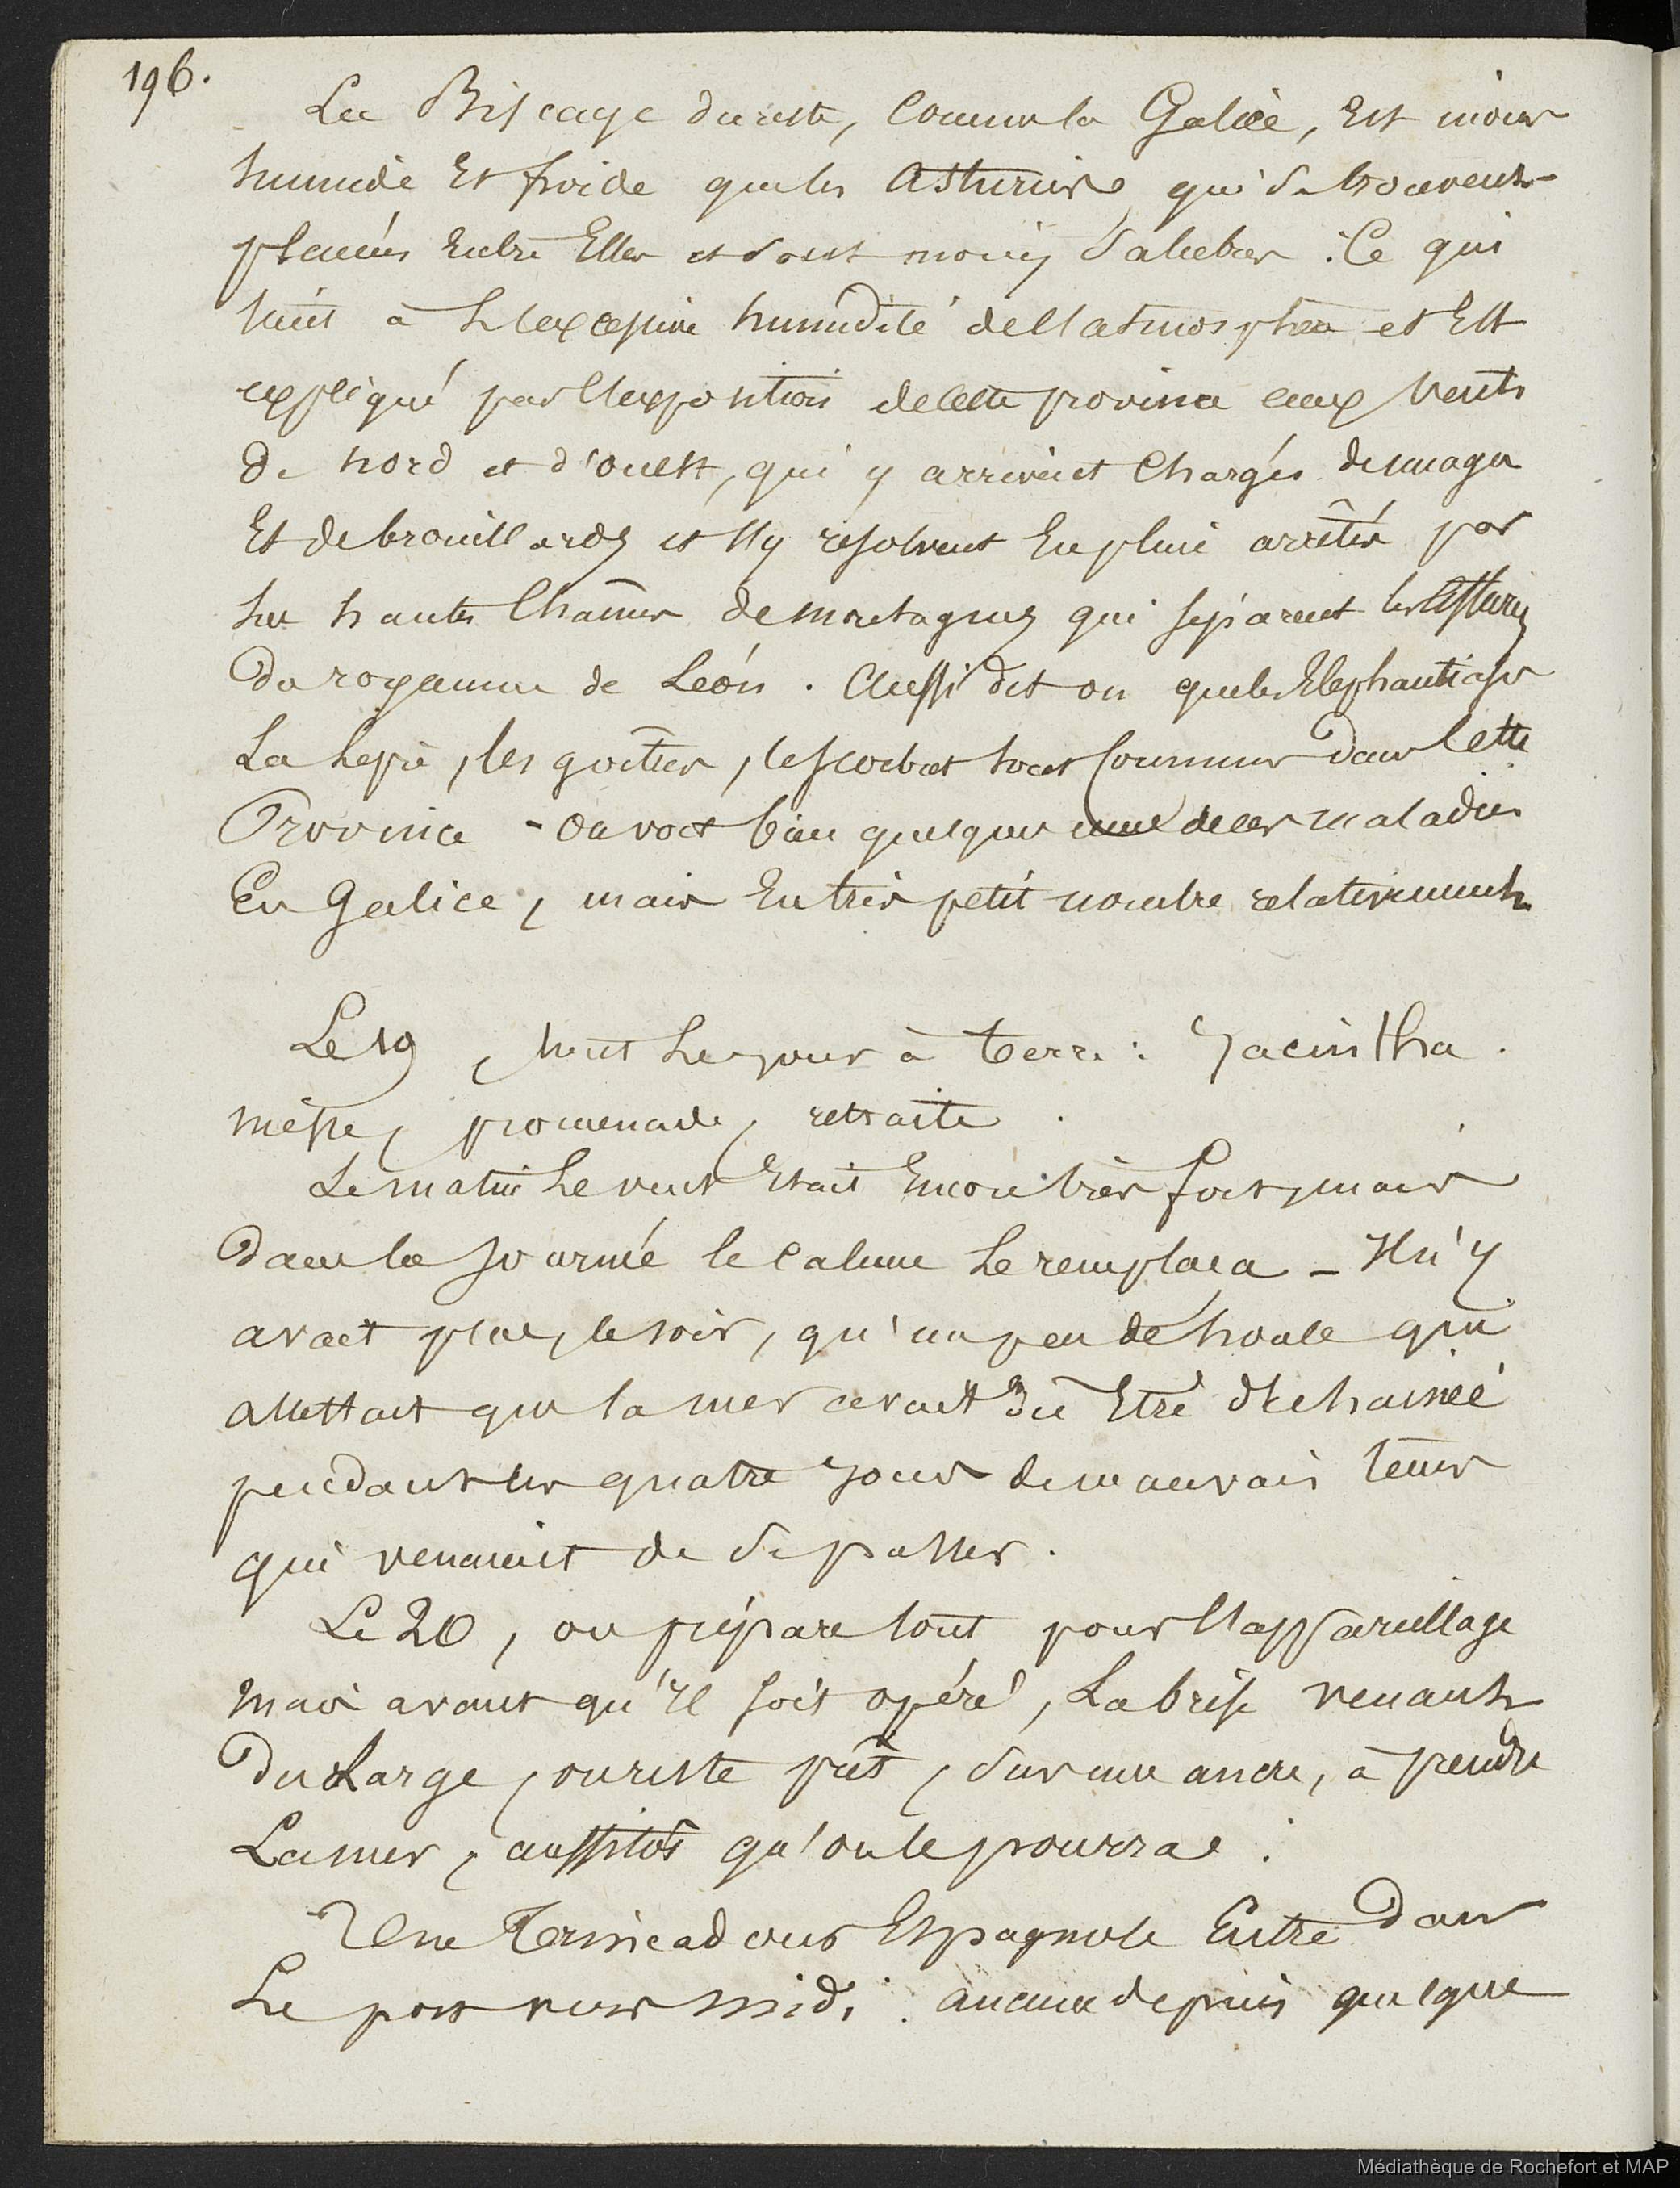 196.
La Biscaye du reste, comme la Galice, est moins
humide et froide que les Asturies, qui se trouvent
placées entre elles et sont moins salubres. Ce qui
tient à l'excessive humidité de l'atmosphère et est
expliqué par l'exposition de cette province aux vents
de nord et d'ouest, qui y arrivent chargés de nuages
et de brouillards et s'y résolvent en pluie arrêtés par
les hautes chaines de montagnes qui séparent les Asturies
du royaume de Léon. Aussi dit on que les Elephantiasis
La lèpre, les goîtres, le scorbut sont communs dans cette
Province - on voit bien quelques unes de ces maladies
En Galice, mais en très petit nombre relativement

Le 19, tout le jour à terre : Jacintha.
messe, promenade, retraite.
Le matin le vent était encore très fort, mais
dans la journée le calme le remplaça - Il n'y
avait plus, le soir, qu'un peu de houle qui
attestait que la mer avait dû être déchainée
pendant les quatre jours de mauvais tems
qui venaient de se passer.
Le 20, on prépare tout pour l'appareillage
mais avant qu'il soit opéré, La brise venant
du Large, on reste prêt, sur une ancre, à prendre
La mer, aussitôt qu'on le pourra.
Une Trincadour Espagnole Entre dans
Le port vers midi. aucune depuis quelque
Médiathèque de Rochefort et MAP